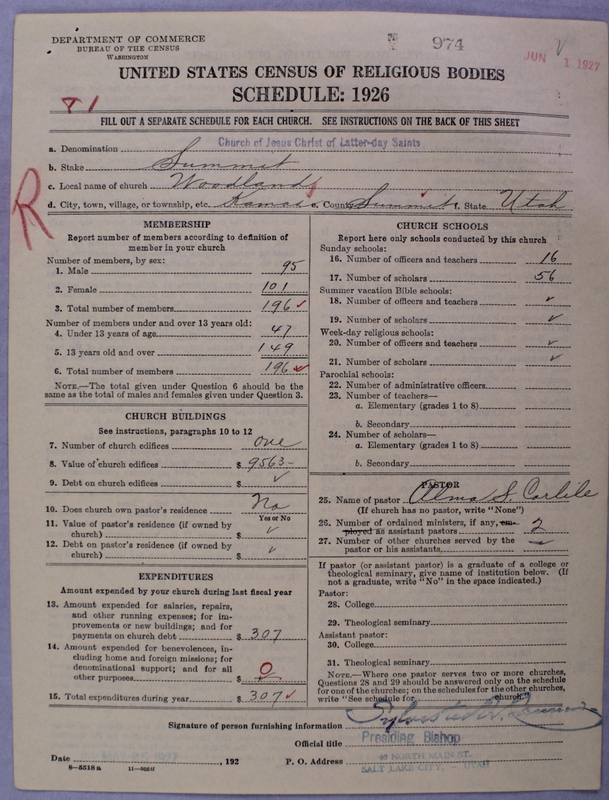 DEPARTMENT OF COMMERCE
BUREAU OF THE CENSUS
WASHINGTON
974
JUN 1 1927
UNITED STATES CENSUS OF RELIGIOUS BODIES
SCHEDULE: 1926
FILL OUT A SEPARATE SCHEDULE FOR EACH CHURCH. SEE INSTRUCTIONS ON THE BACK OF THIS SHEET
a. Denomination Church of Jesus Christ of Latter-day Saints
b. Stake Summit
c. Local name of church Woodland
d. City, town, village, or township, etc. Kamas e. County Summit f. State Utah
R
MEMBERSHIP
Report number of members according to definition of
member in your church
Number of members, by sex:
1. Male 95
2. Female 101
3. Total number of members 196 ✓
Number of members under and over 13 years old:
4. Under 13 years of age 47
5. 13 years old and over 149
6. Total number of members 196 ✓
NOTE.—The total given under Question 6 should be the
same as the total of males and females given under Question 3.
CHURCH BUILDINGS
See instructions, paragraphs 10 to 12
7. Number of church edifices one
8. Value of church edifices $ 9563-
9. Debt on church edifices $ ✓
10. Does church own pastor's residence No
Yes or No
11. Value of pastor's residence (if owned by
church) $ ✓
12. Debt on pastor's residence (if owned by
church) $ ✓
EXPENDITURES
Amount expended by your church during last fiscal year
13. Amount expended for salaries, repairs,
and other running expenses; for im-
provements or new buildings; and for
payments on church debt $ 307
14. Amount expended for benevolences, in-
cluding home and foreign missions; for
denominational support; and for all
other purposes $ 0 ✓
15. Total expenditures during year $ 307 ✓
CHURCH SCHOOLS
Report here only schools conducted by this church
Sunday schools:
16. Number of officers and teachers 16
17. Number of scholars 56
Summer vacation Bible schools:
18. Number of officers and teachers ✓
19. Number of scholars ✓
Week-day religious schools:
20. Number of officers and teachers ✓
21. Number of scholars ✓
Parochial schools:
22. Number of administrative officers
23. Number of teachers—
a. Elementary (grades 1 to 8)
b. Secondary
24. Number of scholars—
a. Elementary (grades 1 to 8)
b. Secondary
PASTOR
25. Name of pastor Alma S. Carlile
(If church has no pastor, write "None")
26. Number of ordained ministers, if any, em-
ployed as assistant pastors 2
27. Number of other churches served by the
pastor or his assistants
If pastor (or assistant pastor) is a graduate of a college or
theological seminary, give name of institution below. (If
not a graduate, write "No" in the space indicated.)
Pastor:
28. College
29. Theological seminary
Assistant pastor:
30. College
31. Theological seminary
NOTE.—Where one pastor serves two or more churches,
Questions 28 and 29 should be answered only on the schedule
for one of the churches; on the schedules for the other churches,
write "See schedule for church"
Signature of person furnishing information
Official title Presiding Bishop
Date , 192 P. O. Address 40 NORTH MAIN ST.
SALT LAKE CITY, UTAH
8—5518 a